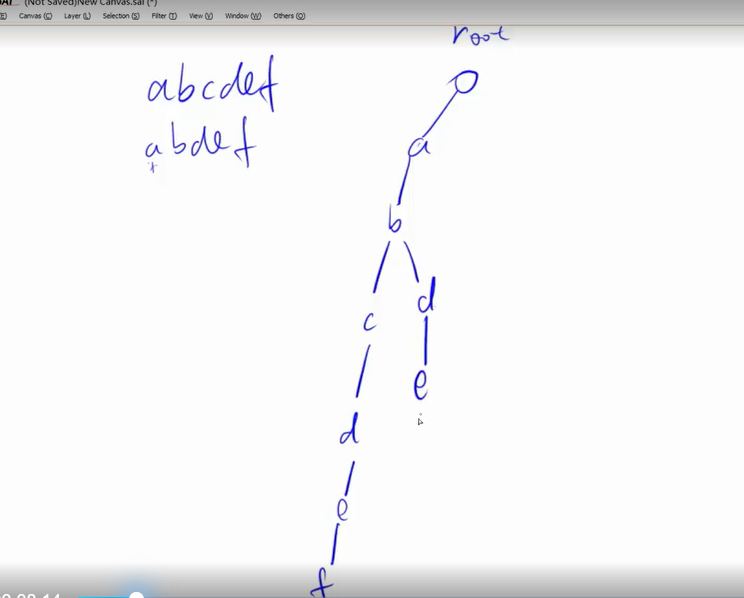 (Not Saved)New Canvas.sai (*)
Canvas (C) Layer (L) Selection (S) Filter (T) View (V) Window (W) Others (O)
root
abcdef
abdef
a
b
d
c
e
d
e
f